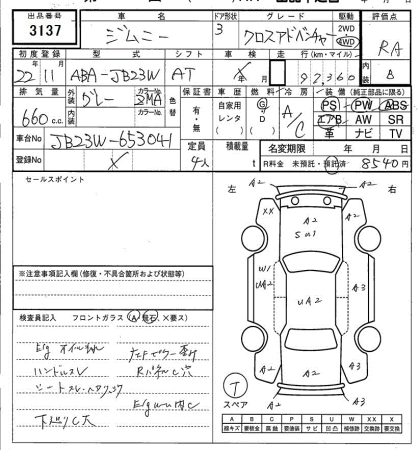 出品番号
3137
車名
ジムニー
ドア形状
3
グレード
クロスアドベンチャー
駆動
2WD
4WD
評価点
RA
初度登録
22年11月
型式
ABA-JB23W
シフト
AT
車検
年 月
走行(km・マイル)
92,360
内装
B
排気量
660c.c.
外装
グレー
カラーNo.
ZMA
内装
カラーNo.
色替
保証書
有・無
車歴
自家用
レンタ
( )
燃料
G
D
( )
冷房
A/C
装備(純正部品に限る)
PS PW ABS
エアB AW SR
革 ナビ TV
車台No
JB23W-653041
登録No
X
定員
4人
積載量
t
名変期限 年 月 日
R料金 未預託・預託済 8540円
セールスポイント
※注意事項記入欄(修復・不具合箇所および状態等)
検査員記入 フロントガラス(A・飛石・X要ス)
E/g オイル
ハンドルスレ
シートスレ
下廻りC大
左
右
A2
A2
XX
A2
A
SU1
W1
UA2
UA2
A3
A3
A2
A2
A2
T
スペア
A B C P S U W X XX
線キズ 要板金 腐蝕 要塗装 サビ 凹凸 補修跡 交換跡 要交換